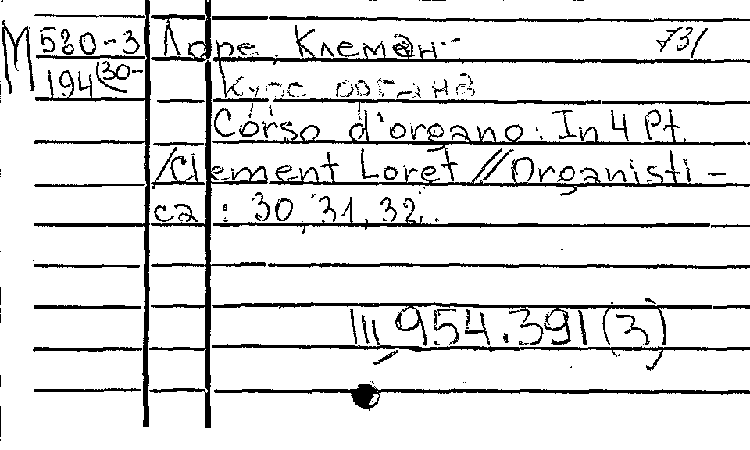 М 580-3 Лоре, Клеман.- 731
194(30- Курс органа
Corso d'organo: In 4 Pt.
/Clement Loret // Organisti-
ca : 30, 31, 32.
III, 954.391(3)